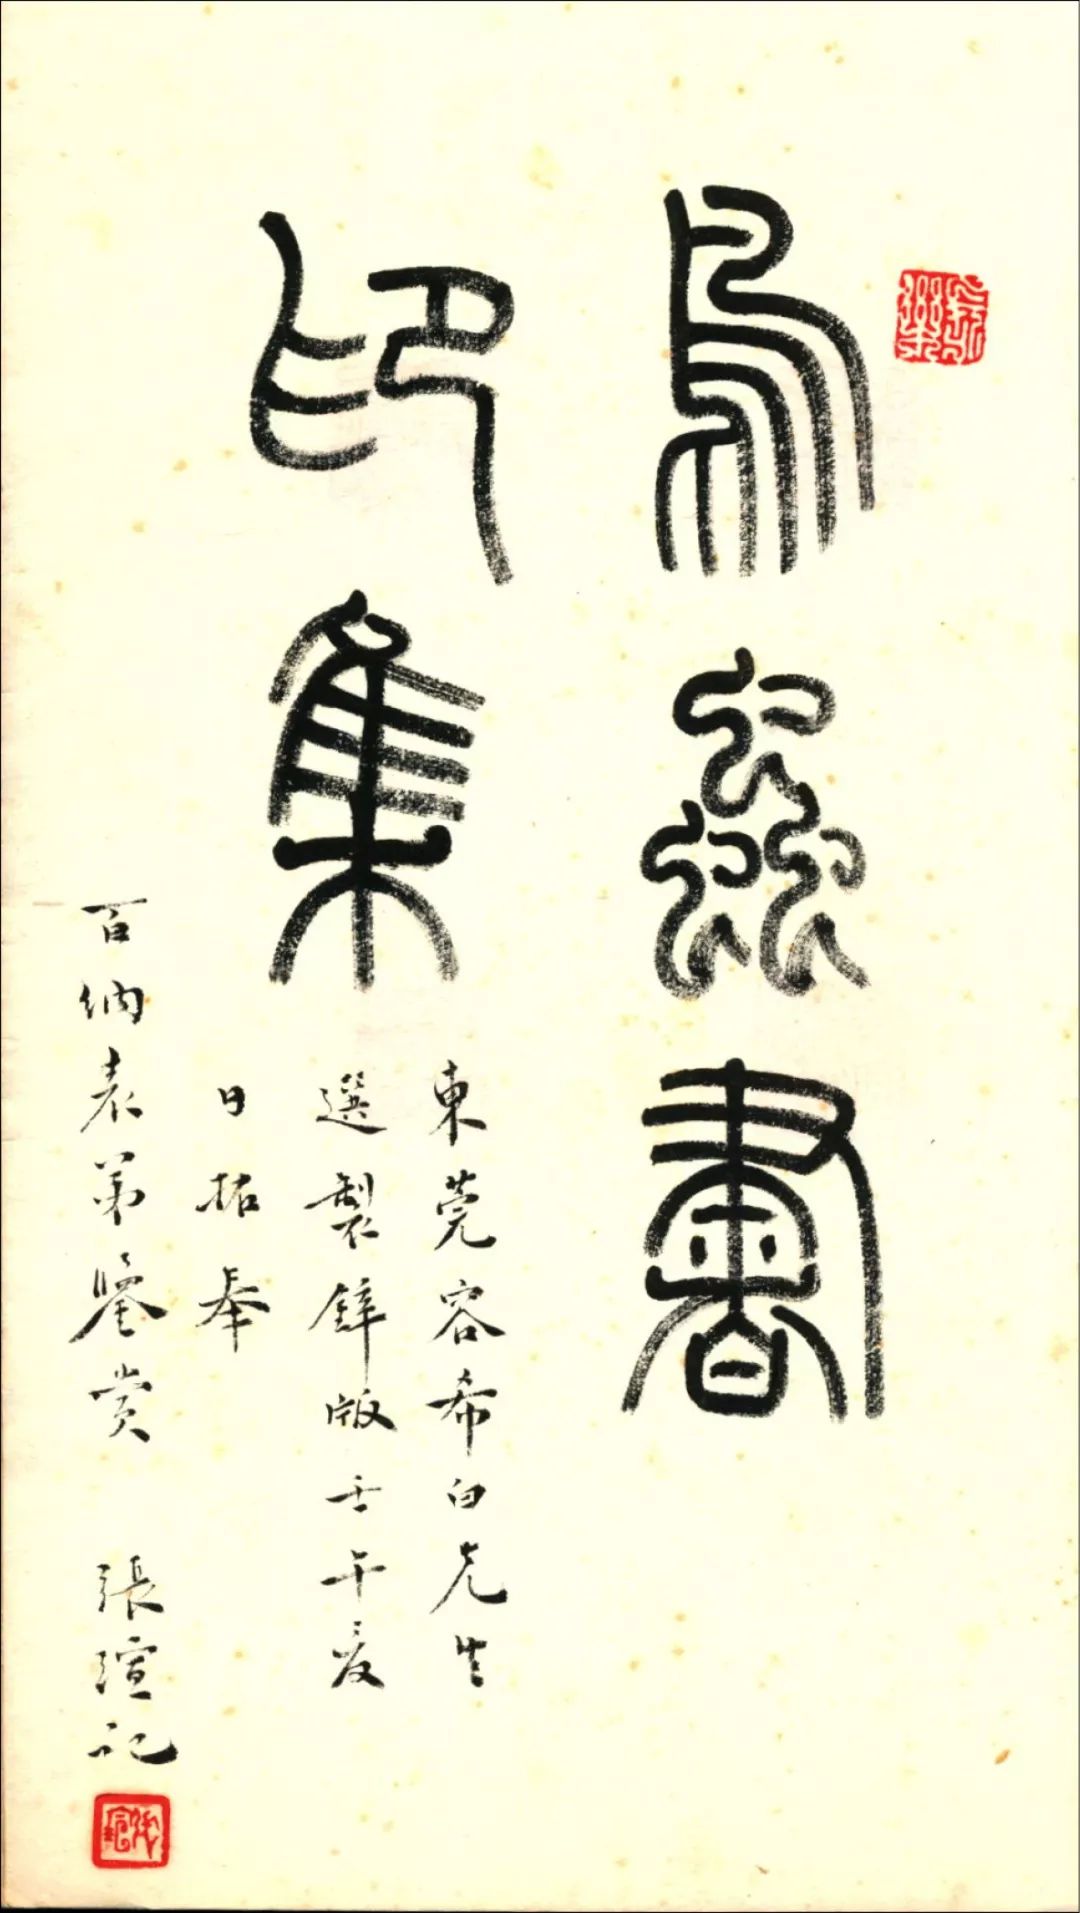 鳥蟲書
印集
東莞容希白先生
選製鋅版壬午夏
日拓奉
百納表弟鑒賞 張瑄記